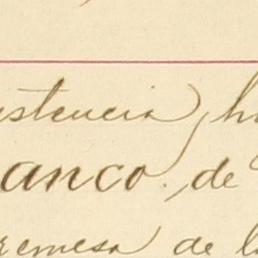 istencia, h
anco, de
remesa de l